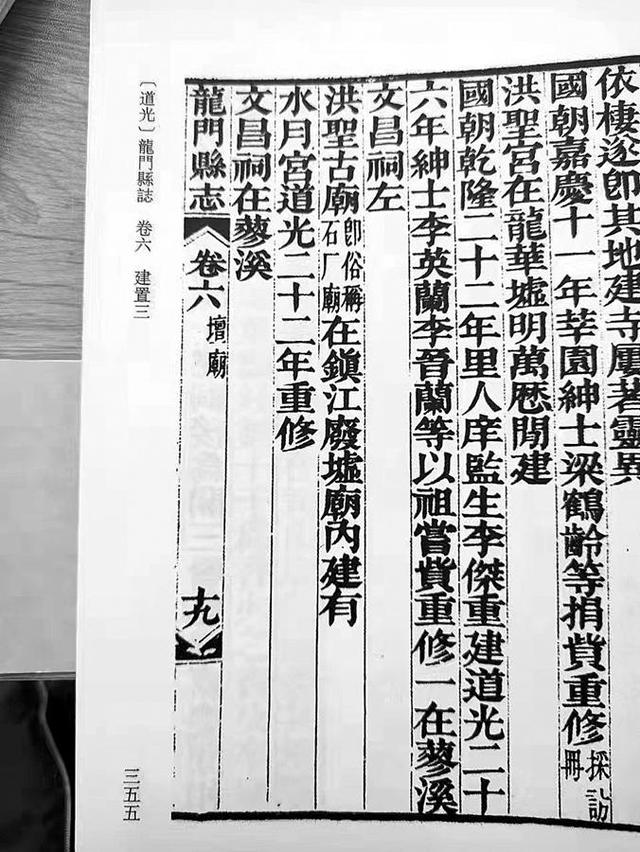 依棲遂卽其地建寺屢著靈異
國朝嘉慶十一年莘園紳士梁鶴齡等捐貲重修採訪冊
洪聖宮在龍華墟明萬厯間建
國朝乾隆二十二年里人庠監生李傑重建道光二十
六年紳士李英蘭李晉蘭等以祖嘗貲重修一在蓼溪
文昌祠左
洪聖古廟卽俗稱石厂廟在鎮江廢墟廟內建有
水月宮道光二十二年重修
文昌祠在蓼溪
龍門縣志 卷六 壇廟 十九
〔道光〕龍門縣誌 卷六 建置三
三五五